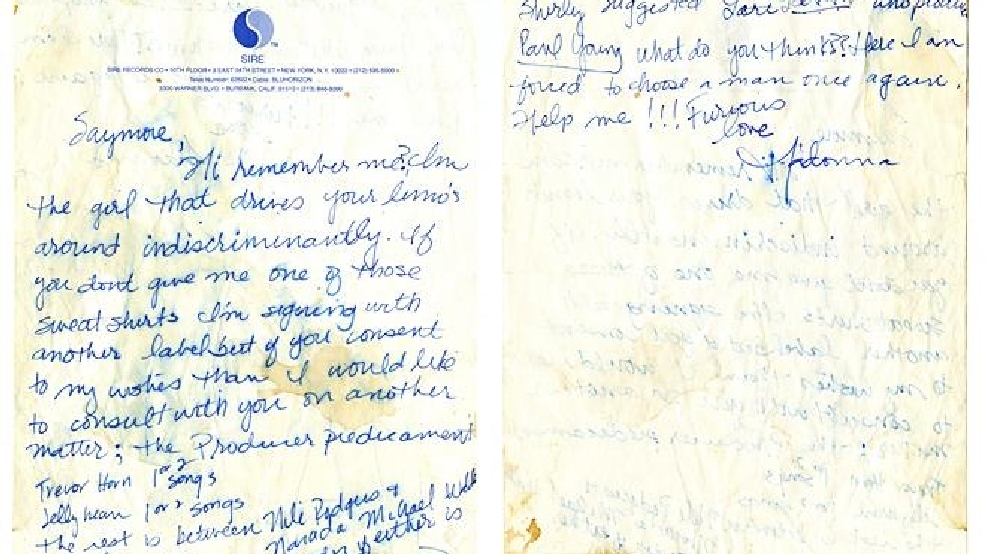 SIRE
SIRE RECORDS CO • 10TH FLOOR • 3 EAST 54TH STREET • NEW YORK, N.Y. 10022 •
3300 WARNER BLVD. • BURBANK, CALIF.
Saymore,
Hi remember me? I'm
the girl that drives your limo's
around indiscriminantly. If
you dont give me one of those
sweatshirts I'm signing with
another label but if you consent
to my wishes than I would like
to consult with you on another
matter; the Producer predicament
Trevor Horn 1 or 2 songs
Jellybean 1 or 2 songs
the rest is between Nile Rodgers &
Narada Michael
either is
Shirly suggested
Paul Young what do you think??? Here I am
forced to choose a man once again.
Help me !!! Furious
love